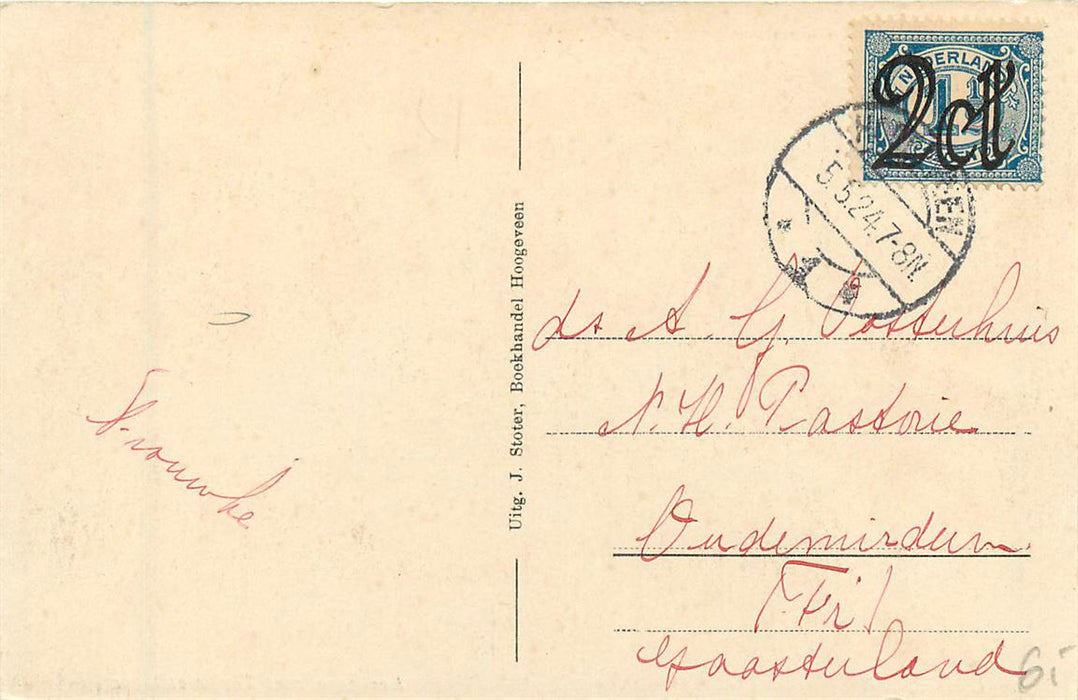 NEDERLAND
2 ct
5.5.24.7-8N.
Uitg. J. Stoter, Boekhandel Hoogeveen
ds A. G. Oosterhuis
N. H. Pastorie
Oudemirdum
Fr!
Gaasterland
6,-